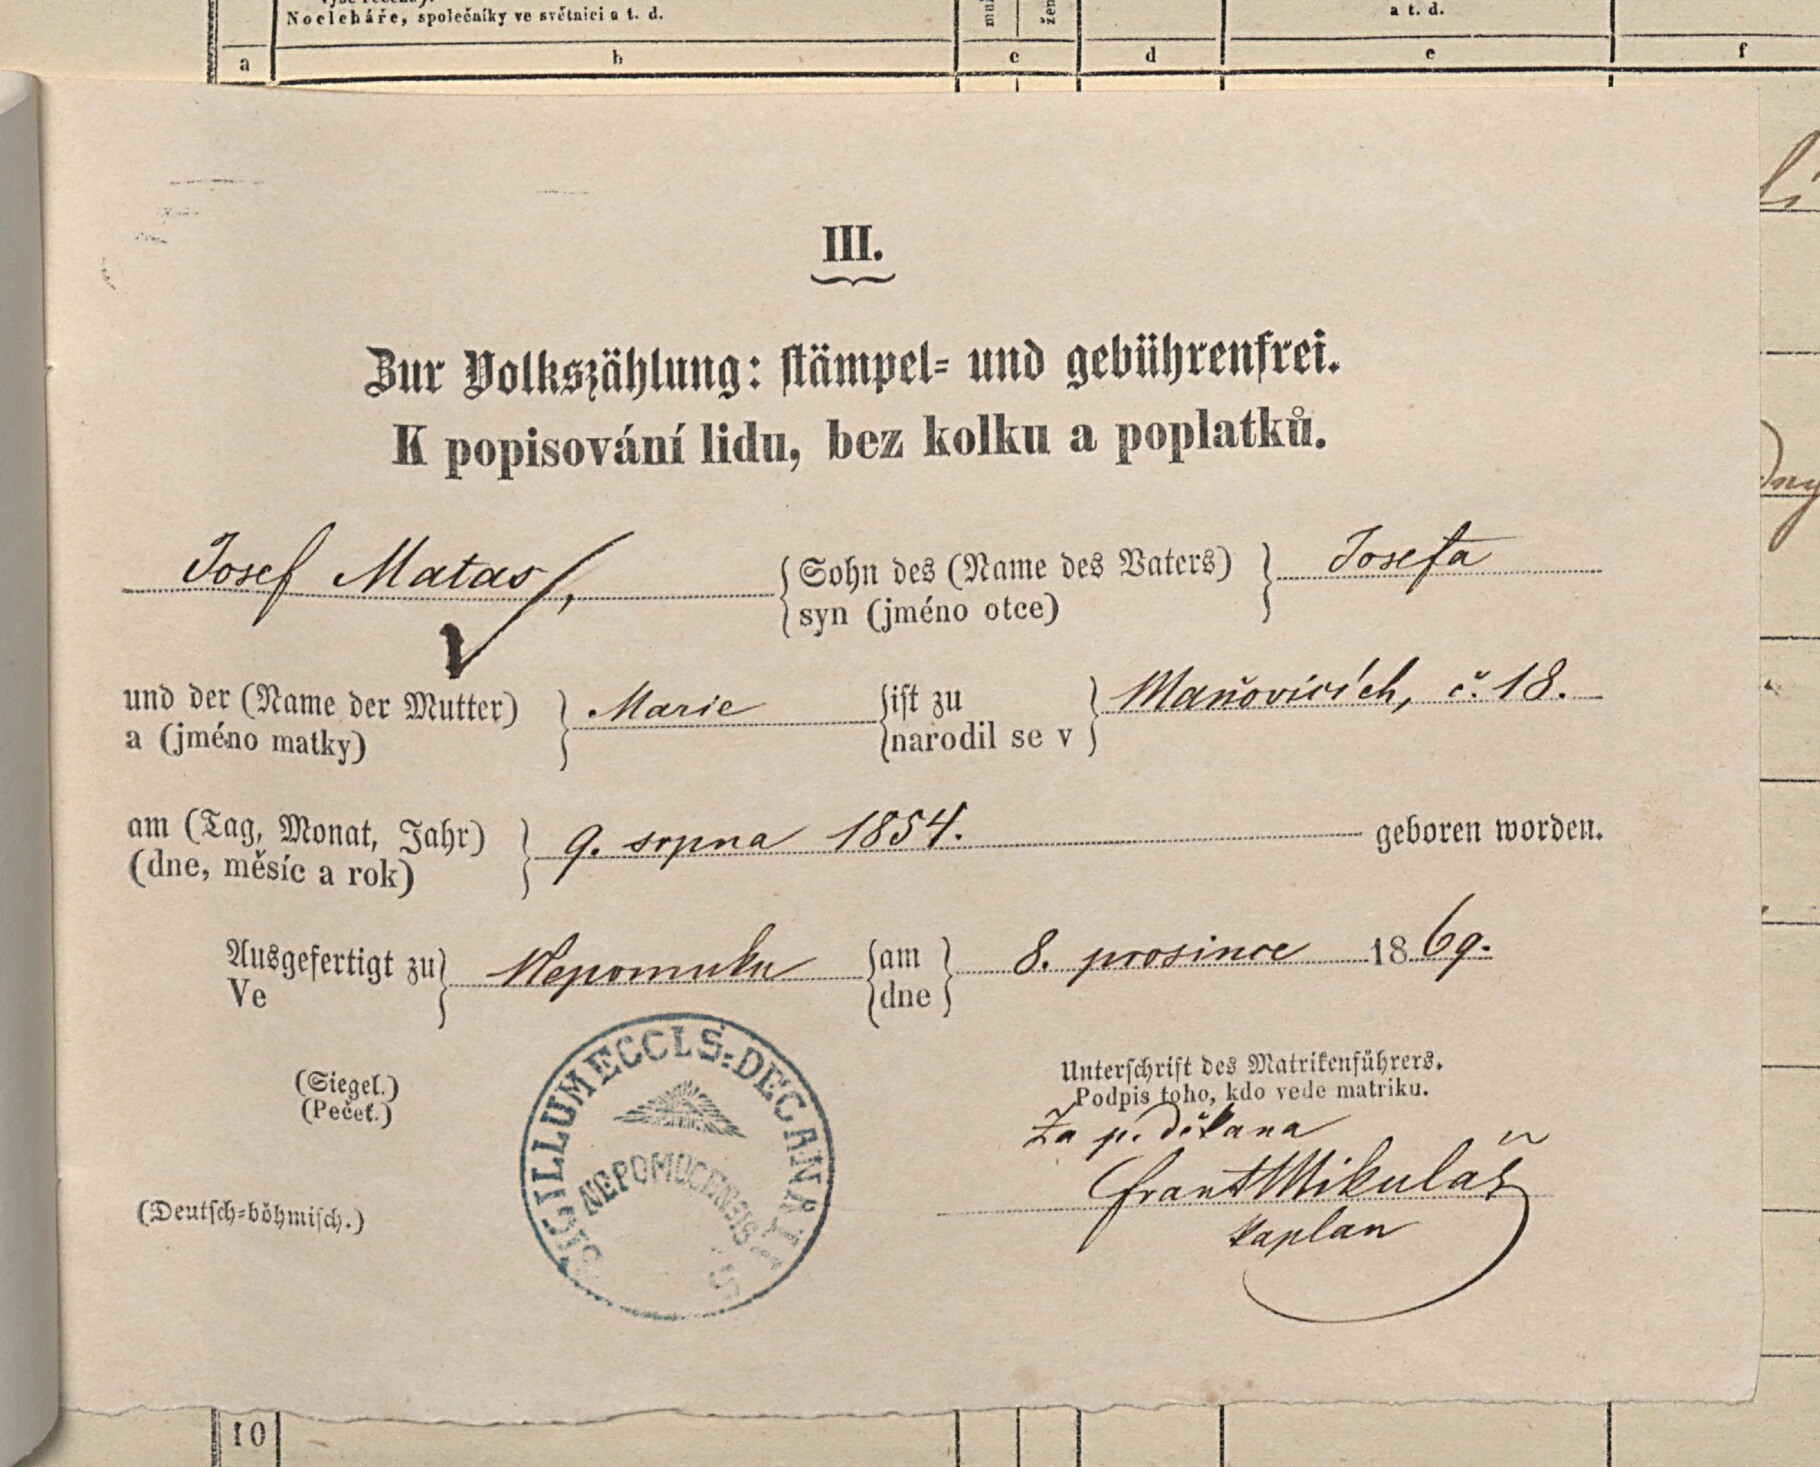 Nocleháře, společníky ve světnici a t. d.
a t. d.
a b c d e f
III.
Zur Volkszählung: stämpel- und gebührenfrei.
K popisování lidu, bez kolku a poplatků.
Josef Matas, { Sohn des (Name des Vaters) } Josefa
syn (jméno otce)
und der (Name der Mutter) } Marie { ist zu } Maňovicích, č. 18.
a (jméno matky) narodil se v
am (Tag, Monat, Jahr) } 9. srpna 1854. geboren worden.
(dne, měsíc a rok)
Ausgefertigt zu } Nepomuku { am } 8. prosince 1869.
Ve dne
(Siegel.)
(Pečeť.)
SIGILLUM ECCLS: DECANALIS
NEPOMUCENSIS
Unterschrift des Matrikenführers.
Podpis toho, kdo vede matriku.
Za p. děkana
Frant Mikuláš
kaplan
(Deutsch-böhmisch.)
10